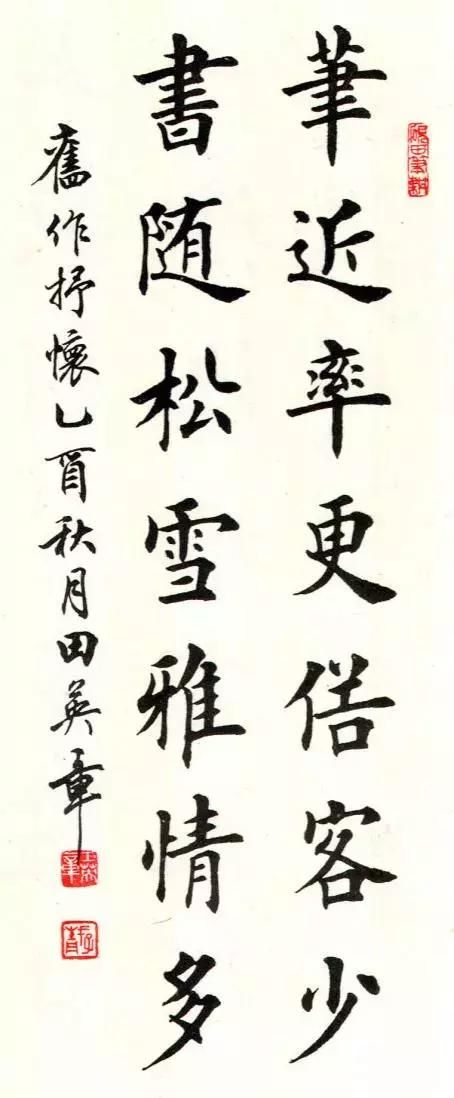 筆近率更俗客少
書随松雪雅情多
舊作抒懷乙酉秋月田英章